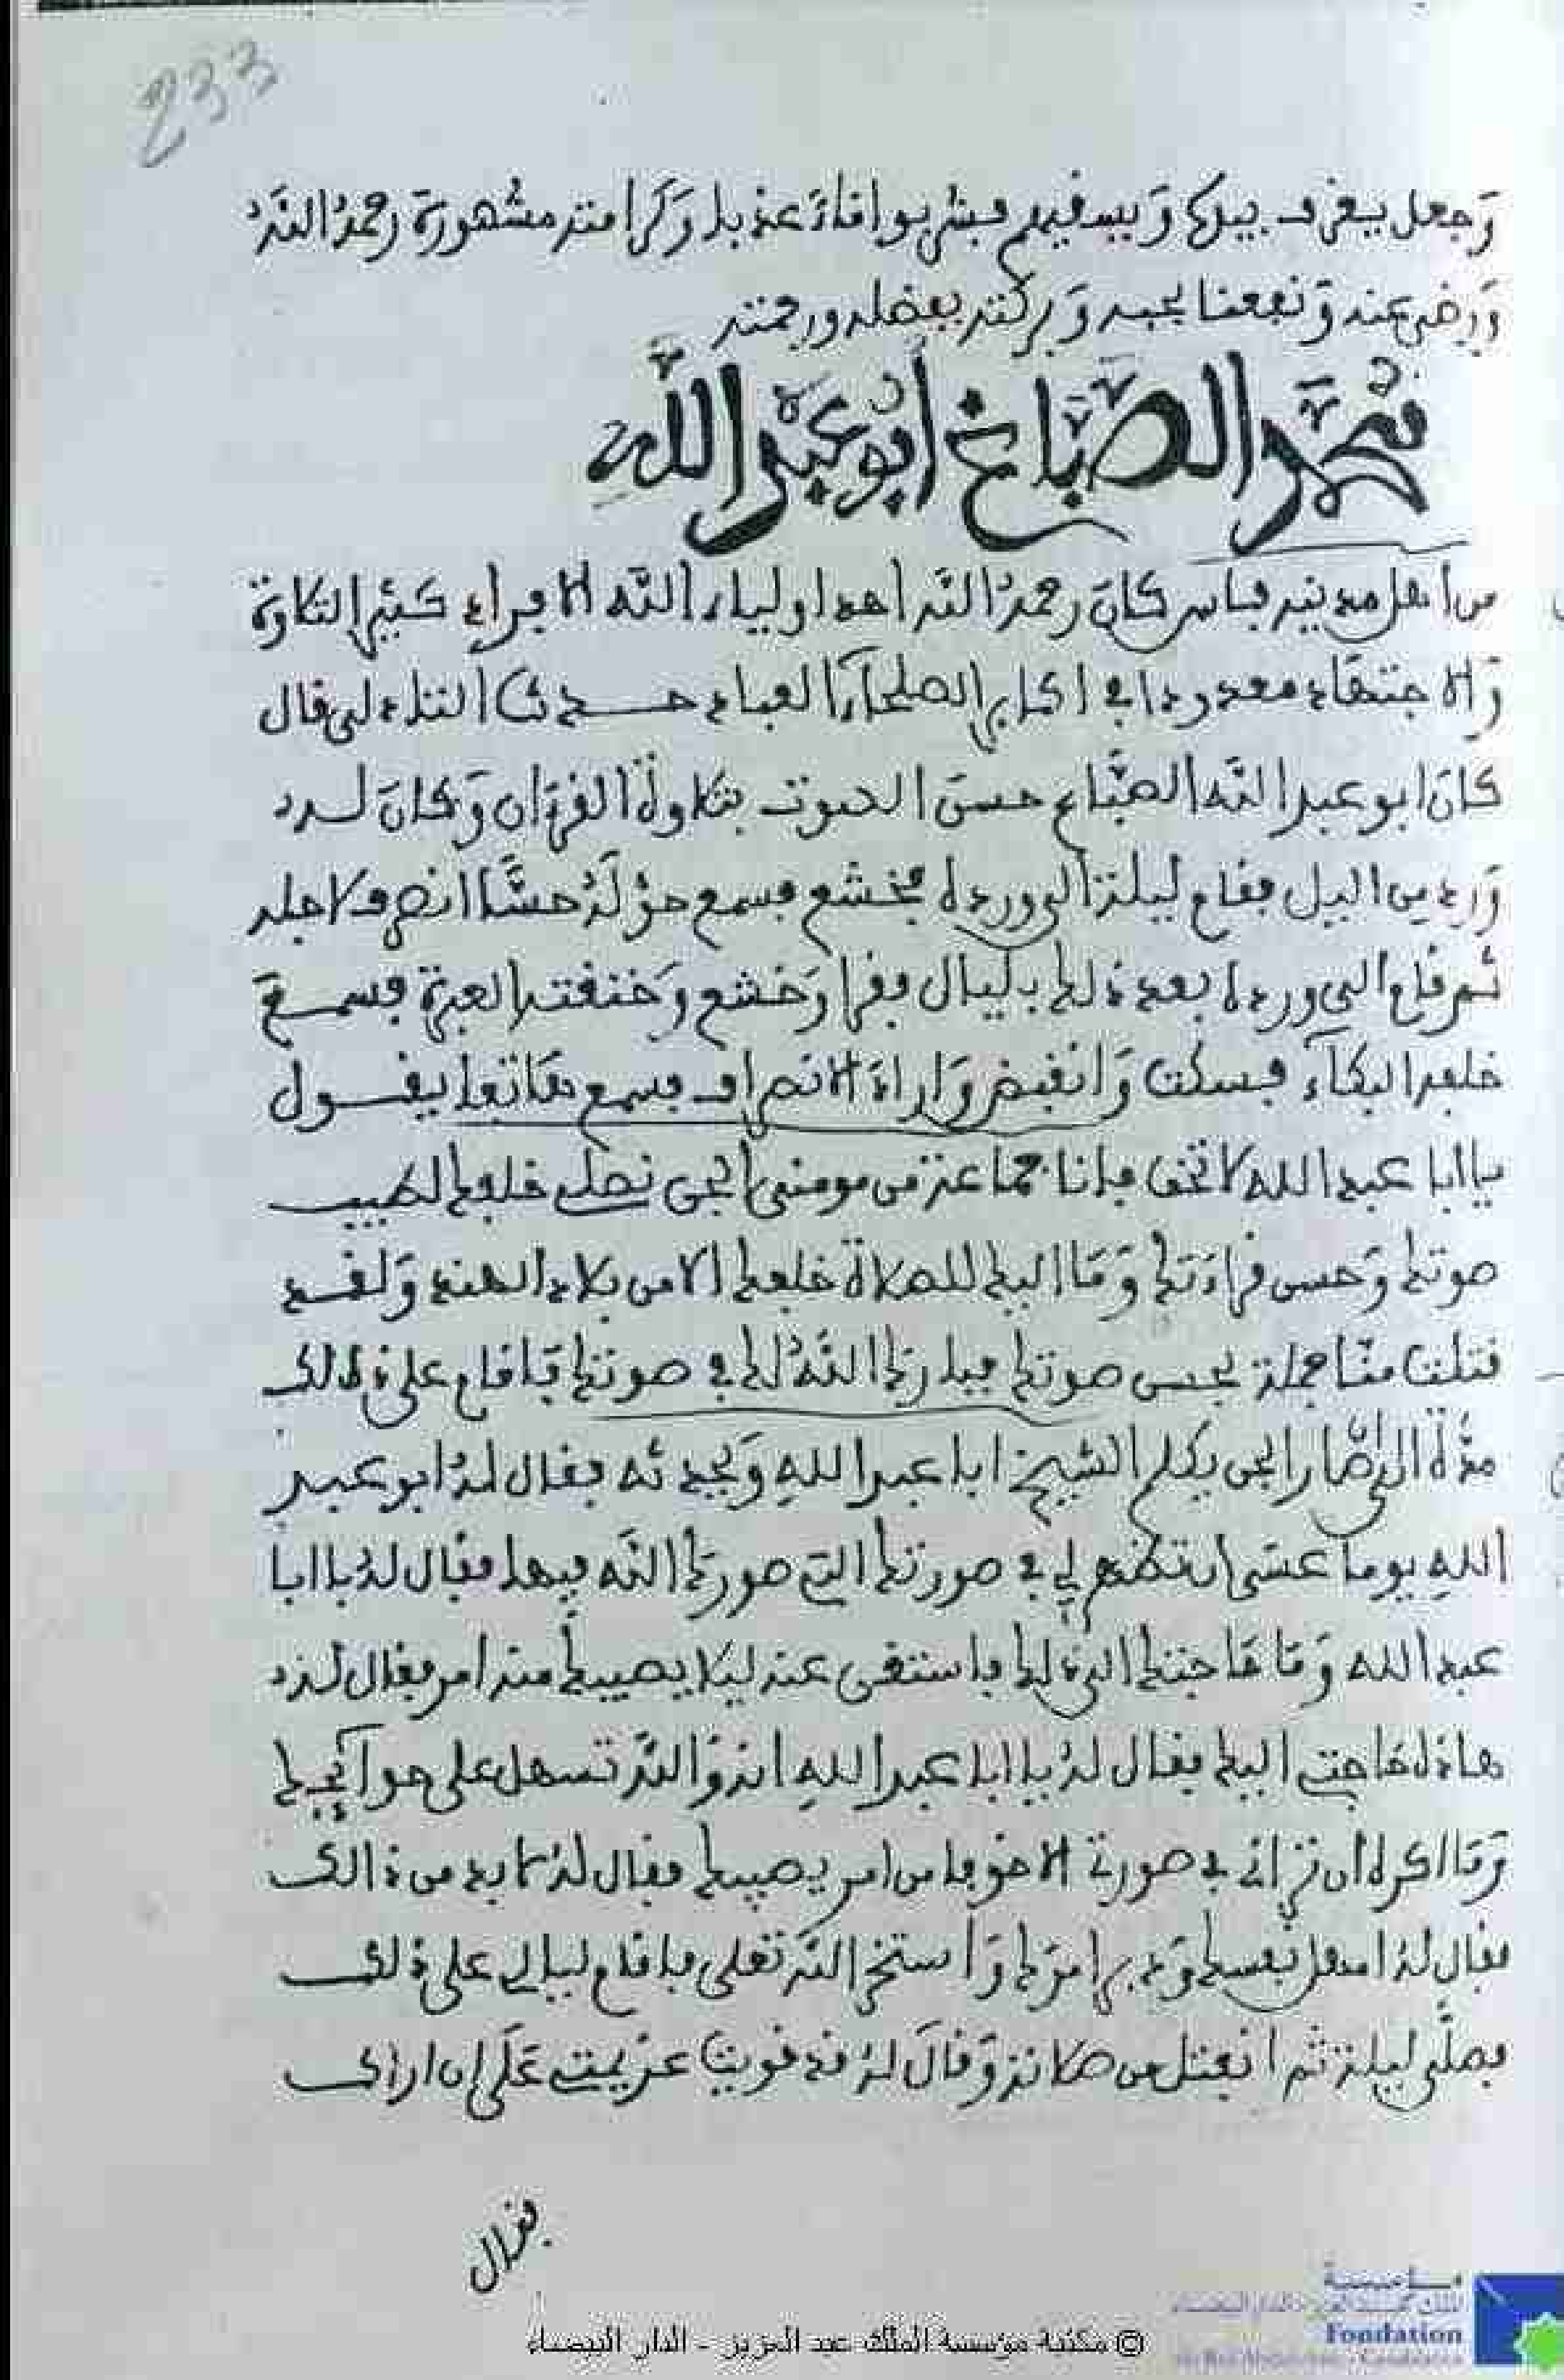 233
وَجعل يغرف بيده وَيسفيهم فشربوا ماءً عذبا وَكرامته مشهورة رحمهُ اللَّهُ
وَرضى عنه وَنفعنا بحبه وَبركته بفضله ورحمته
محمَّد الصَّبَّاغ أبو عبد اللَّه
من اهل مدينه فاس كانَ رحمهُ اللَّه احد اولياء اللَّه الافراد كثير التلاوة
وَالاجتهاد معدودا في اكابر الصلحآء العباد حدث التادلى قال
كانَ ابو عبد اللَّه الصَّباغ حسنَ الصوت بتلاوة القرءان وَكانَ لــه
وَرد من اليل فقام ليلة الى ورده فخشع فسمع حوْلَهُ حسًّا انصرف لاجله
ثم قام الى ورده بعد ذلك بليال فقرا وَخشع وَخنقته العبرة فسمــعَ
خلفه البكآء فسكت وَانقبض وَارادَ الانصراف فسمع هاتفا يقــول
يا ابا عبد الله لا تخف فانا جماعة من مومنى الجن نصلى خلفك لطيب
صوتك وَحسن قراءَتك وَمَا اتيك للصلاة خلفك الا من بلاد الهند وَلقــد
قتلت منَّا جملة بحسن صوتك فبارك اللَّهُ لك في صوتك فاقام على ذالك
مدَّة الى اَن صار الجن يكلم الشيخ ابا عبد اللهِ وَيحدثه فقال لهُ ابو عبد
اللهِ يوما عسَى ان تظهر لي في صورتك التي صورك اللَّه فيها فقال لهُ يا ابا
عبد الله وَمَا حَاجتك الى ذلك فاستعفى عنه ليلا يصيبك منه امر فقال لــه
هاذه حَاجتى اليك فقال لهُ يا ابا عبد اللهِ انه وَاللَّه تسهل على حوآئجك
وَمَا اكره ان ترانى في صورتى الا خوفا من امر يصيبك فقال لهُ لا بد من ذالك
فقال لهُ امهل نفسك وَدبر امرَك وَاستخر اللَّه تعلى فاقام ليالى على ذلك
فصلَّى ليلة ثم انفتل من صلاته وَقالَ لهُ قد قويت عزيمتى عَلَى ان اراك
فقال
© مكتبة مؤسسة الملك عبد العزيز - الدار البيضاء
مؤسسة
Fondation